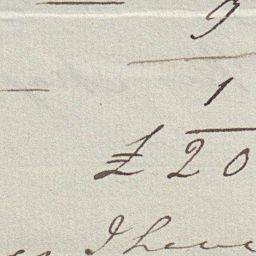 9
1
£ 20
I have